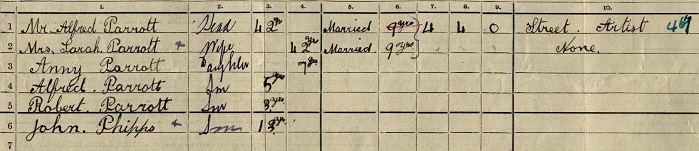 1. 2. 3. 4. 5. 6. 7. 8. 9. 10.
1 Mr. Alfred Parrott Head 42 yrs Married 9 yrs 4 4 0 Street. Artist 469
2 Mrs. Sarah. Parrott + Wife 42 yrs Married. 9 yrs None.
3 Anny Parrott Daughter 7 yrs
4 Alfred. Parrott Son 5 yrs
5 Robert. Parrott Son 3 yrs
6 John. Phipps + Son 13 yrs